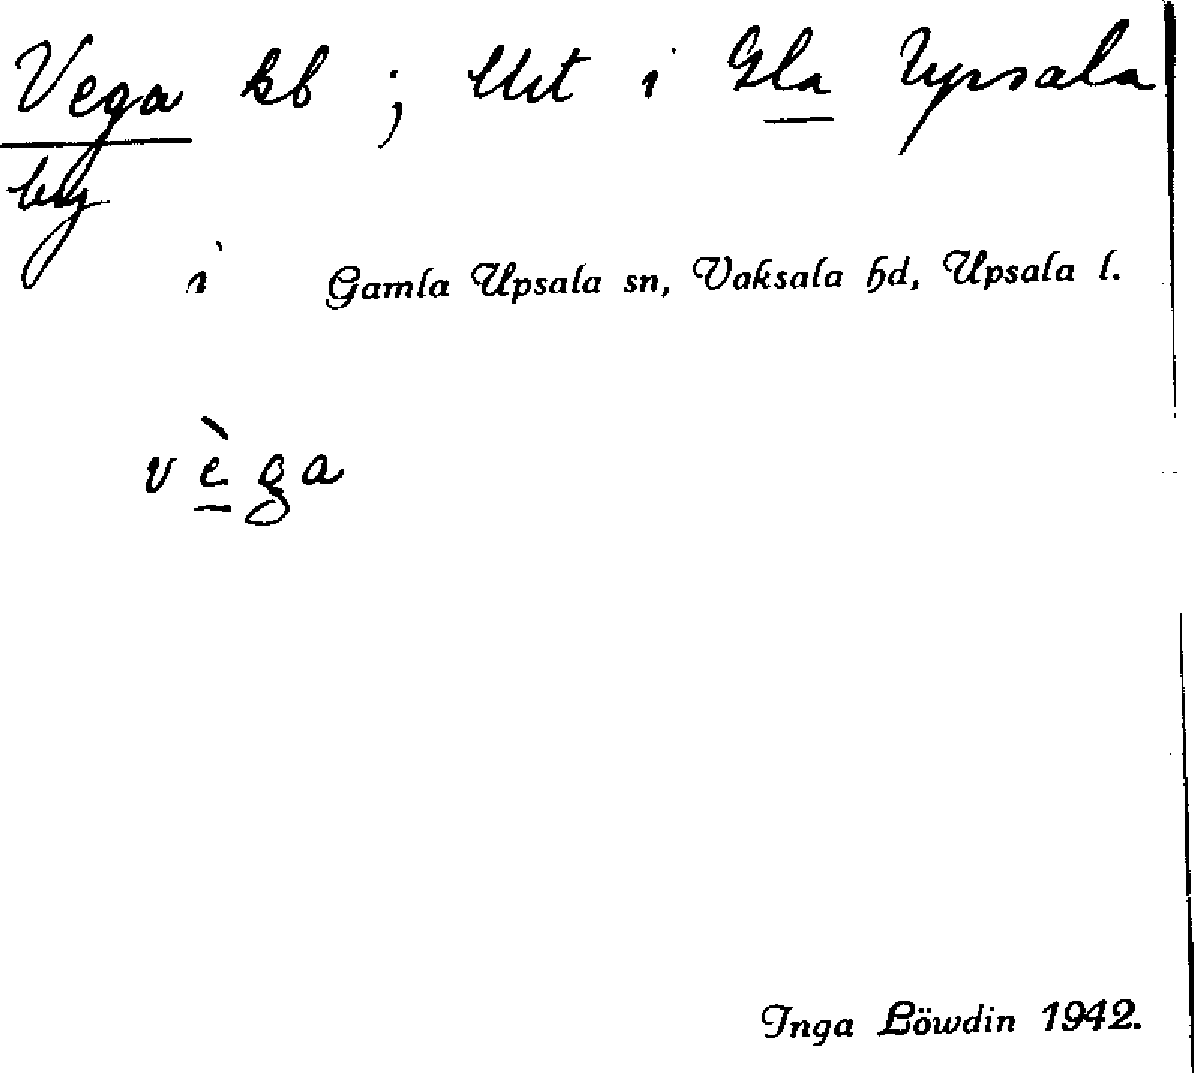 Vega kb ; litt i Gla Upsala
by
i Gamla Upsala sn, Vaksala hd, Upsala l.
vèga
Inga Löwdin 1942.